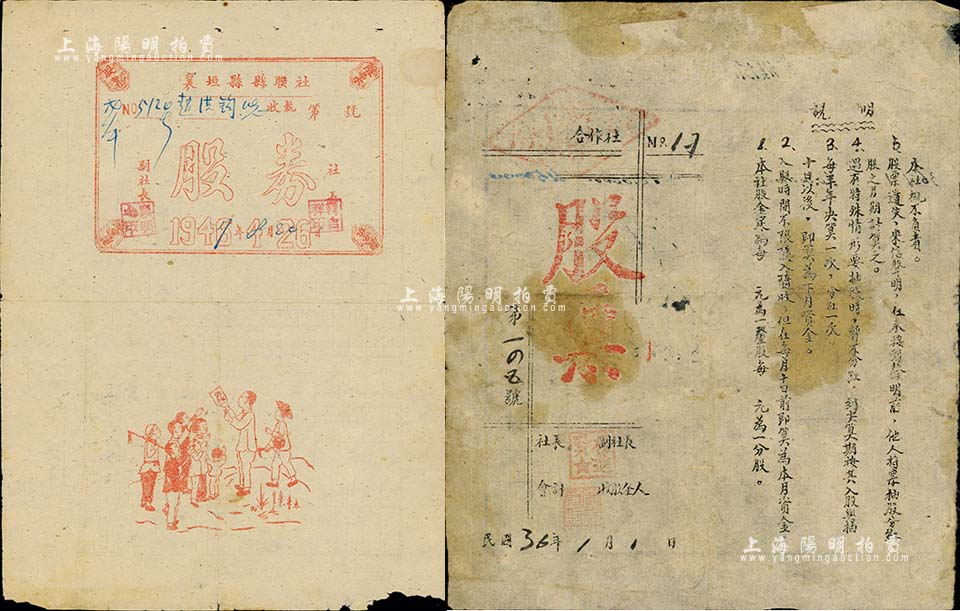 上海陽明拍賣
www.yangmingauction.com
襄垣縣縣聯社
NO5120号
收執 第 號
股 券
社長
副社長
1948年4月26
上海陽明拍賣
www.yangmingauction.com
合作社
No. 17
股票
第一〇五號
社長 副社長
會計 收股金人
民國36年1月1日
說明
1. 本社股金定為每 元為一整股每 元為一分股。
2. 入股時間不限隨入隨收,但在每月十日前即算為本月資金
十日以後,即算為下月資金。
3. 每半年決算一次,分紅一次。
4. 遇有特殊情形要抽股時,暫不分紅,到決算期按其入股與抽
股之月期計算之。
5. 股票遺失,來信聲明,在未接到聲明前,他人持票抽股分紅
本社概不負責。
上海陽明拍賣
www.yangmingauction.com